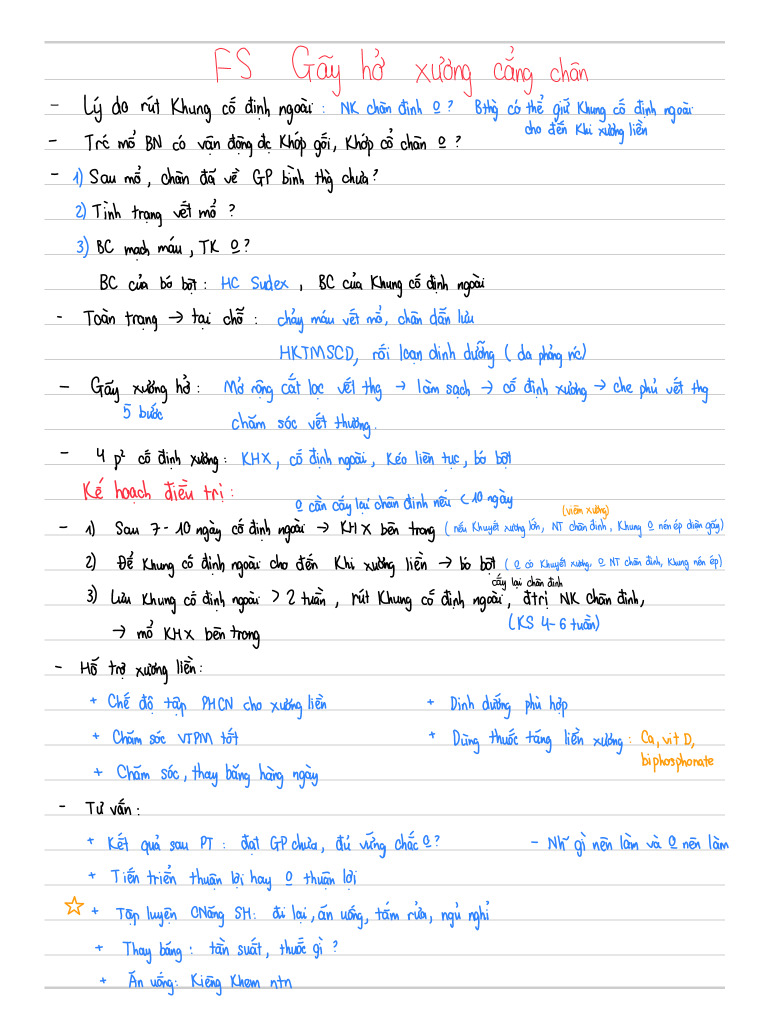 FS Gãy hở xương cẳng chân
- Lý do rút khung cố định ngoài : NK chân đinh o? Bthg có thể giữ khung cố định ngoài
cho đến khi xương liền
- Trc mổ BN có vận động đc khớp gối, khớp cổ chân o ?
- 1) Sau mổ, chân đã về GP bình thg chưa?
2) Tình trạng vết mổ ?
3) BC mạch máu, TK o?
BC của bó bột : HC Sudex , BC của khung cố định ngoài
- Toàn trạng → tại chỗ : chảy máu vết mổ, chân dẫn lưu
HKTMSCD, rối loạn dinh dưỡng ( da phỏng nc)
- Gãy xương hở : Mở rộng cắt lọc vết thg → làm sạch → cố định xương → che phủ vết thg
5 bước
chăm sóc vết thương.
- 4 p² cố định xương : KHX, cố định ngoài, kéo liên tục, bó bột
Kế hoạch điều trị :
o cần cấy lại chân đinh nếu < 10 ngày
(viêm xương)
- 1) Sau 7 - 10 ngày cố định ngoài → KHX bên trong ( nếu khuyết xương lớn, NT chân đinh, khung o nén ép diện gãy)
2) Để khung cố định ngoài cho đến khi xương liền → bó bột ( o có khuyết xương, o NT chân đinh, khung nén ép)
cấy lại chân đinh
3) Lưu khung cố định ngoài > 2 tuần , rút khung cố định ngoài, đtrị NK chân đinh,
(KS 4-6 tuần)
→ mổ KHX bên trong
- Hỗ trợ xương liền :
+ Chế độ tập PHCN cho xương liền + Dinh dưỡng phù hợp
+ Chăm sóc VTPM tốt + Dùng thuốc tăng liền xương : Ca, vit D,
biphosphonate
+ Chăm sóc, thay băng hàng ngày
- Tư vấn :
+ Kết quả sau PT : đạt GP chưa, đủ vững chắc o? - Nh~ gì nên làm và o nên làm
+ Tiến triển thuận lợi hay o thuận lợi
☆ + Tập luyện CNăng SH: đi lại, ăn uống, tắm rửa, ngủ nghỉ
+ Thay băng : tần suất, thuốc gì ?
+ Ăn uống: Kiêng khem ntn